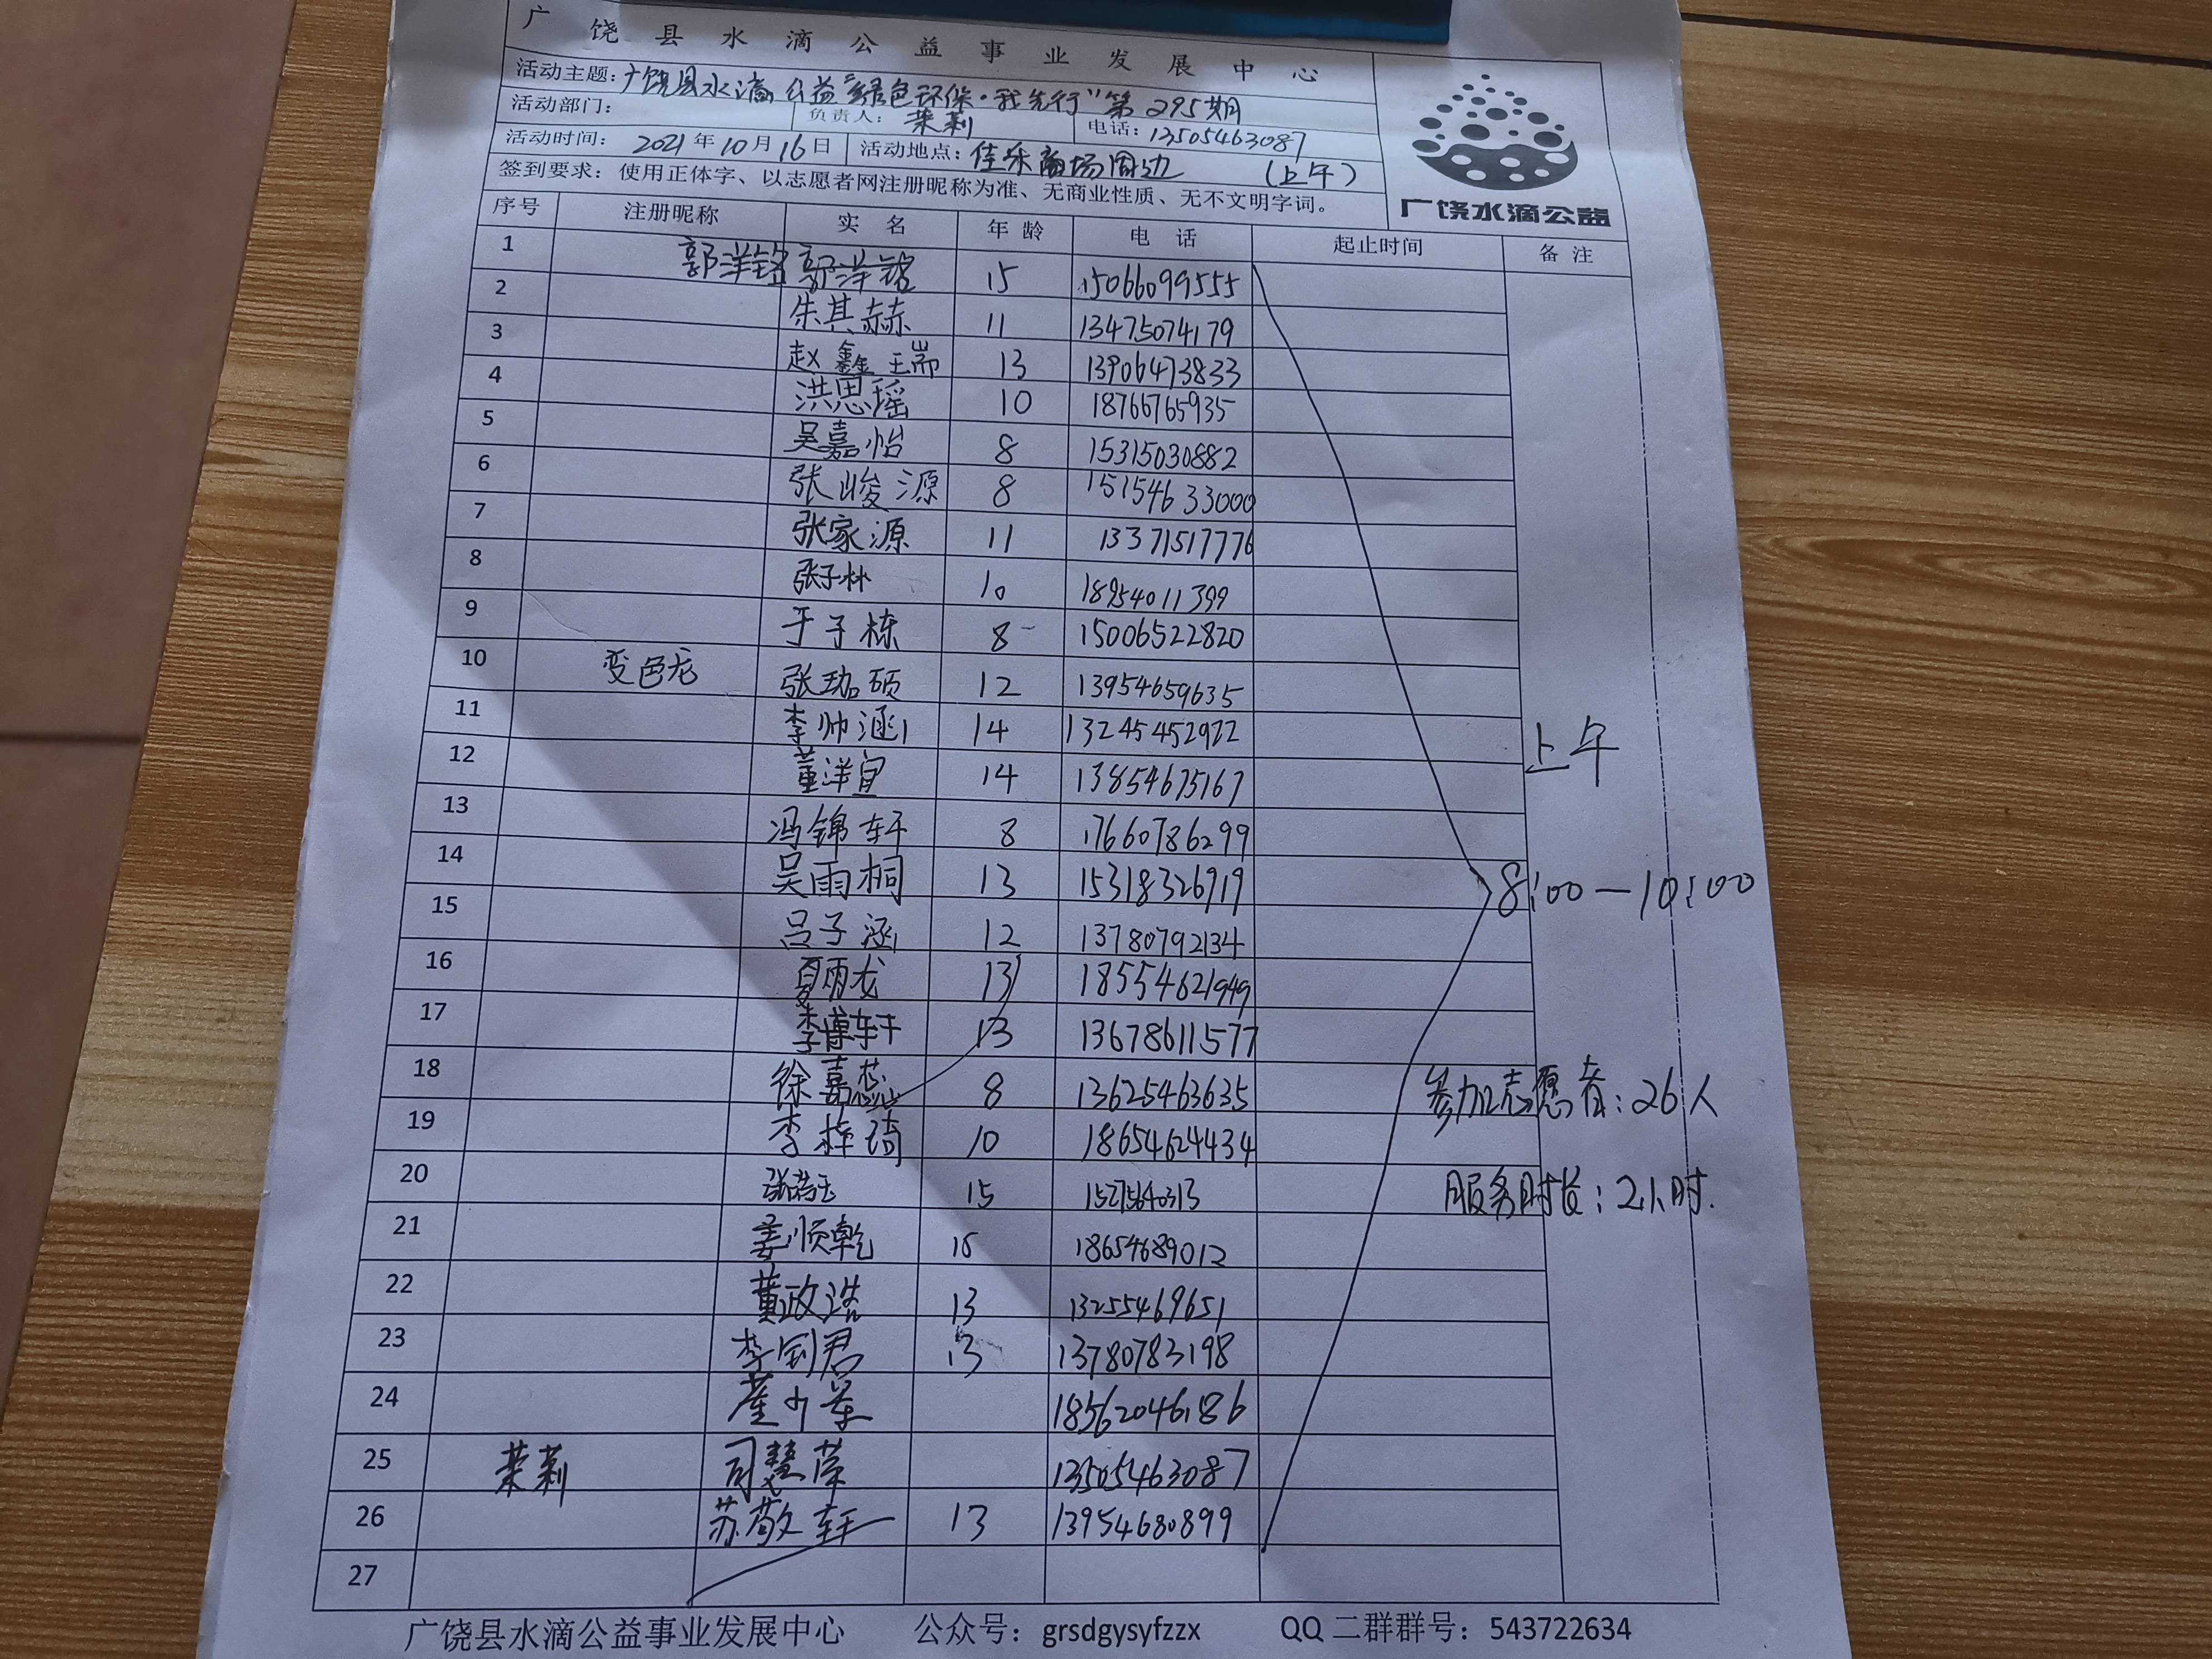 广饶县水滴公益事业发展中心
活动主题：广饶县水滴公益“绿色环保·我先行”第295期
活动部门： 负责人：茉莉 电话：13505463087
活动时间：2021年10月16日 活动地点：佳乐商场周边（上午）
签到要求：使用正体字、以志愿者网注册昵称为准、无商业性质、无不文明字词。
广饶水滴公益
序号 注册昵称 实名 年龄 电话 起止时间 备注
1 郭洋铭 郭洋铭 15 15066099555
2 朱其赫 11 13475074179
3 赵鑫瑞 13 13906473833
4 洪思瑶 10 18766765935
5 吴嘉怡 8 15315030882
6 张峻源 8 15154633000
7 张家源 11 13371517776
8 张子林 10 18954011399
9 于子栋 8 15006522820
10 变色龙 张珈硕 12 13954659635
11 李帅涵 14 13245452922
上午
12 董洋宜 14 13854675167
13 冯锦轩 8 17660786299
14 吴雨桐 13 15318326919
8:00—10:00
15 吕子涵 12 13780792134
16 夏雨龙 13 18554621949
17 李博轩 13 13678611577
18 徐嘉蕊 8 13625463635
参加志愿者：26人
19 李梓琦 10 18654624434
20 15 15275640313
服务时长：2小时.
21 姜顺乾 18654689012
22 董政浩 13 13255469651
23 李剑君 13 13780783198
24 18562046186
25 茉莉 司慧荣 13505463087
26 苏敬轩 13 13954680899
27
广饶县水滴公益事业发展中心 公众号：grsdgysyfzzx QQ二群群号：543722634